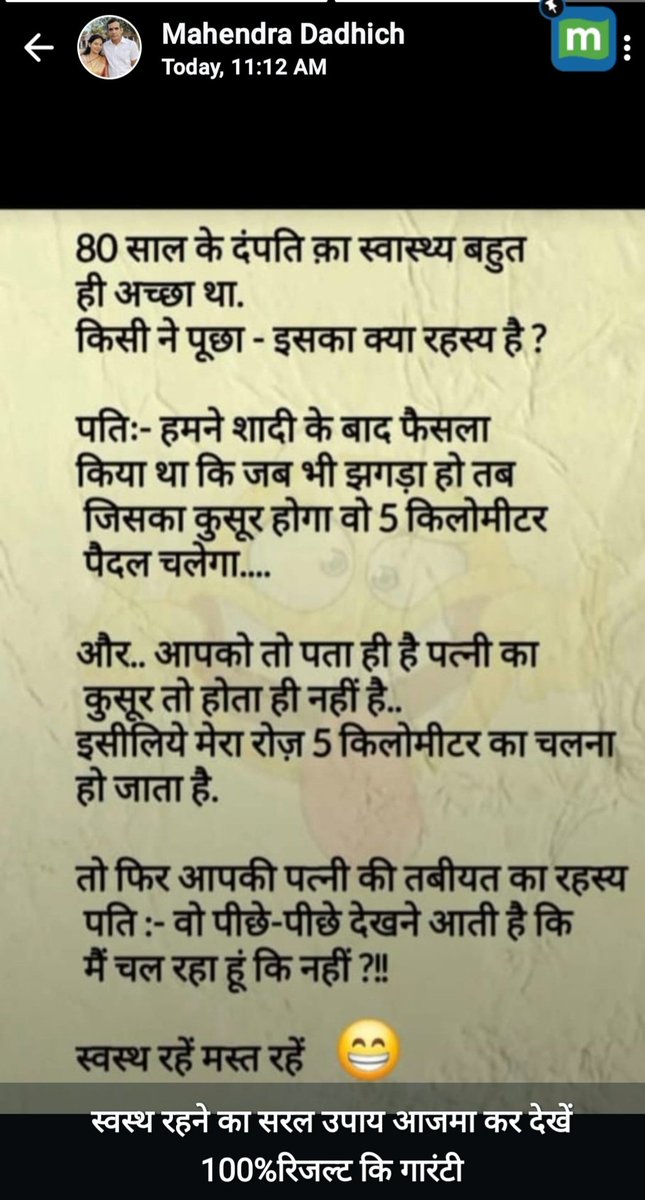 Mahendra Dadhich
Today, 11:12 AM
m
80 साल के दंपति क़ा स्वास्थ्य बहुत
ही अच्छा था.
किसी ने पूछा - इसका क्या रहस्य है ?
पतिः- हमने शादी के बाद फैसला
किया था कि जब भी झगड़ा हो तब
जिसका कुसूर होगा वो 5 किलोमीटर
पैदल चलेगा....
और.. आपको तो पता ही है पत्नी का
कुसूर तो होता ही नहीं है..
इसीलिये मेरा रोज़ 5 किलोमीटर का चलना
हो जाता है.
तो फिर आपकी पत्नी की तबीयत का रहस्य
पति :- वो पीछे-पीछे देखने आती है कि
मैं चल रहा हूं कि नहीं ?!!
स्वस्थ रहें मस्त रहें 😁
स्वस्थ रहने का सरल उपाय आजमा कर देखें
100%रिजल्ट कि गारंटी